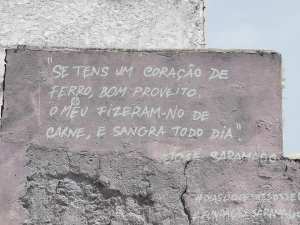 "SE TENS UM CORAÇÃO DE
FERRO, BOM PROVEITO.
O MEU FIZERAM-NO DE
CARNE, E SANGRA TODO DIA"
JOSÉ SARAMAGO